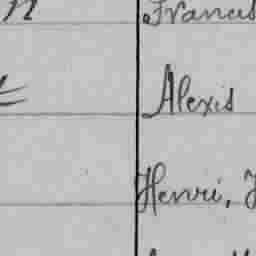 Francis
Alexis
Henri, J